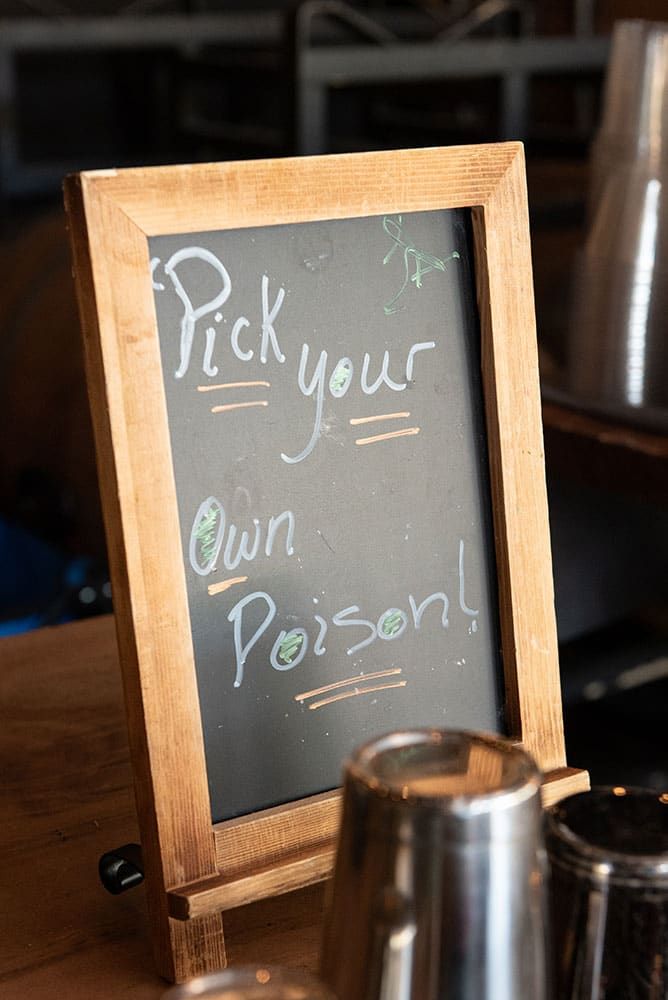 Pick
your
Own
Poison!